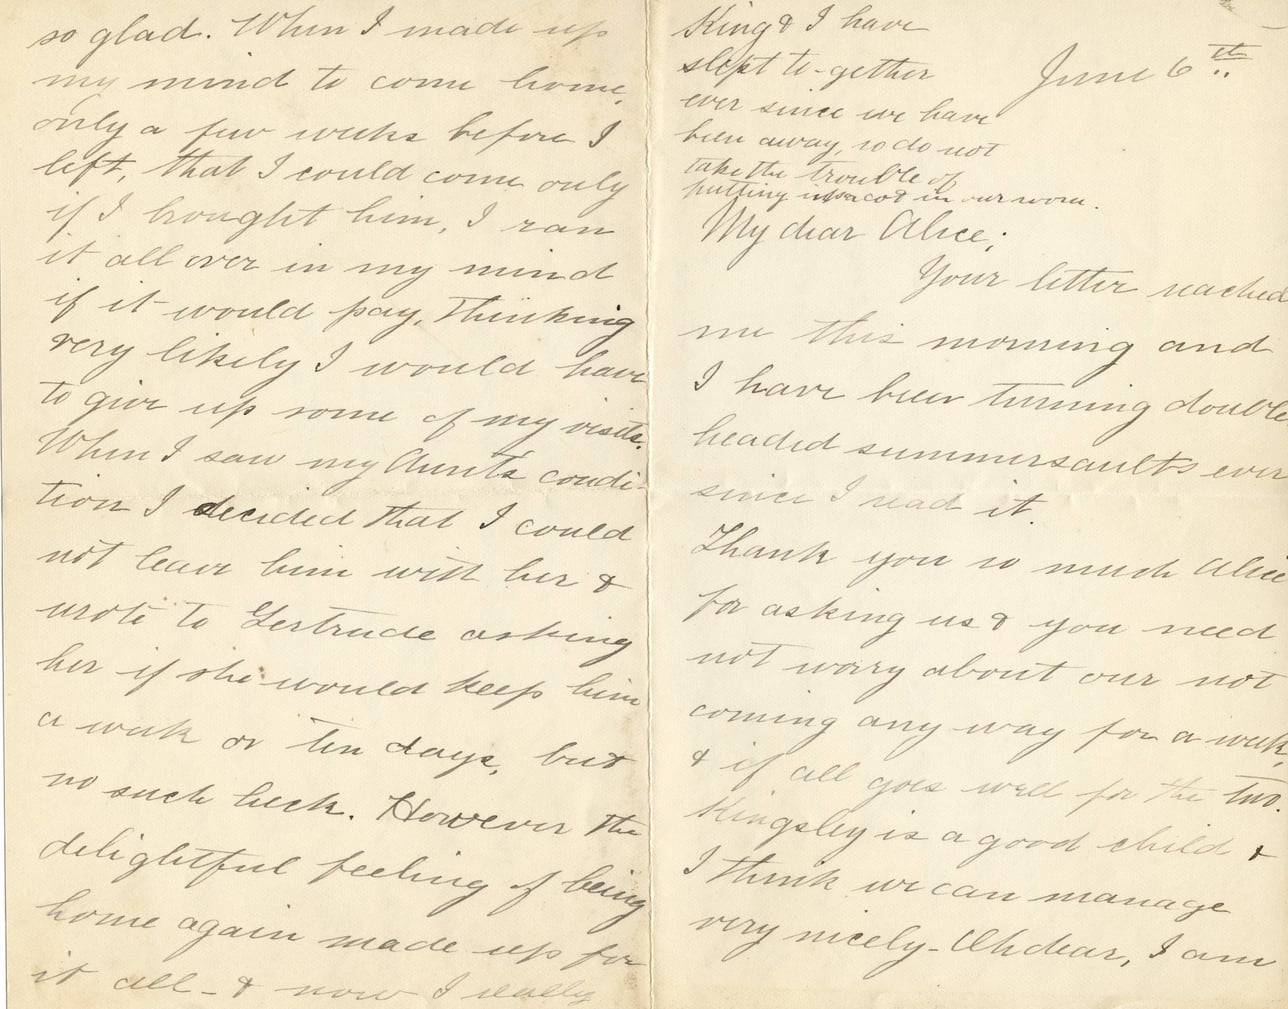 June 6th
King & I have
slept to-gether
ever since we have
been away, so do not
take the trouble of
putting a cot in our room.
My dear Alice;
Your letter reached
me this morning and
I have been turning double
headed summersaults ever
since I read it.
Thank you so much Alice
for asking us & you need
not worry about our not
coming any way for a week,
& if all goes well for the two.
Kingsley is a good child &
I think we can manage
very nicely - Oh dear, I am
so glad. When I made up
my mind to come home,
only a few weeks before I
left, that I could come only
if I brought him, I ran
it all over in my mind
if it would pay, thinking
very likely I would have
to give up some of my visits.
When I saw my Aunt's condi-
tion I decided that I could
not leave him with her &
wrote to Gertrude asking
her if she would keep him
a week or ten days, but
no such luck. However the
delightful feeling of being
home again made up for
it all - & now I really